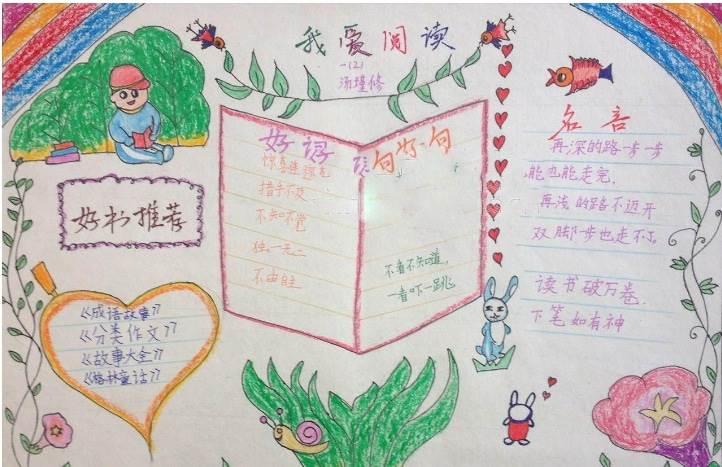 我爱阅读
一(2)
汤堇修
好书推荐
《成语故事》
《分类作文》
《故事大全》
《格林童话》
好词
惊喜连连
措手不及
不知不觉
独一无二
不由自主
好句
不看不知道,
一看吓一跳
名言
再深的路一步一步
能也能走完,
再浅的路不迈开
双脚一步也走不了。
读书破万卷,
下笔如有神